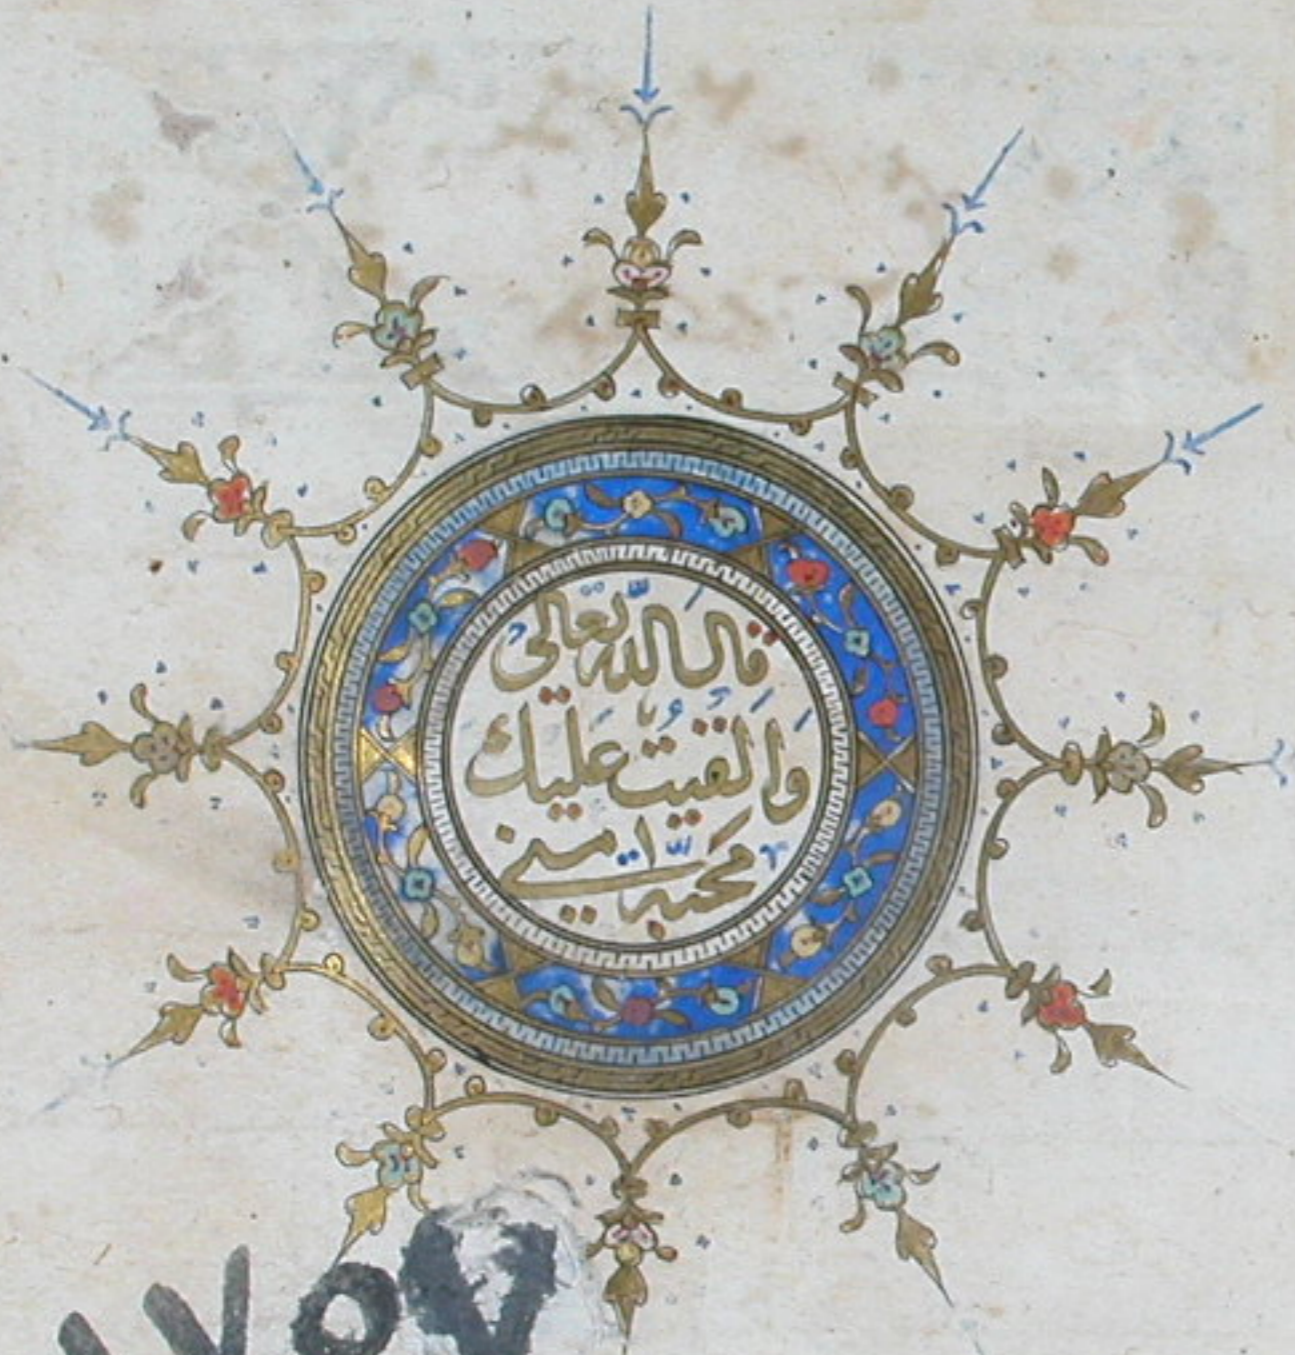 قال الله تعالى
وَالقيتُ عَليك
محبة مني
١٧٥٧